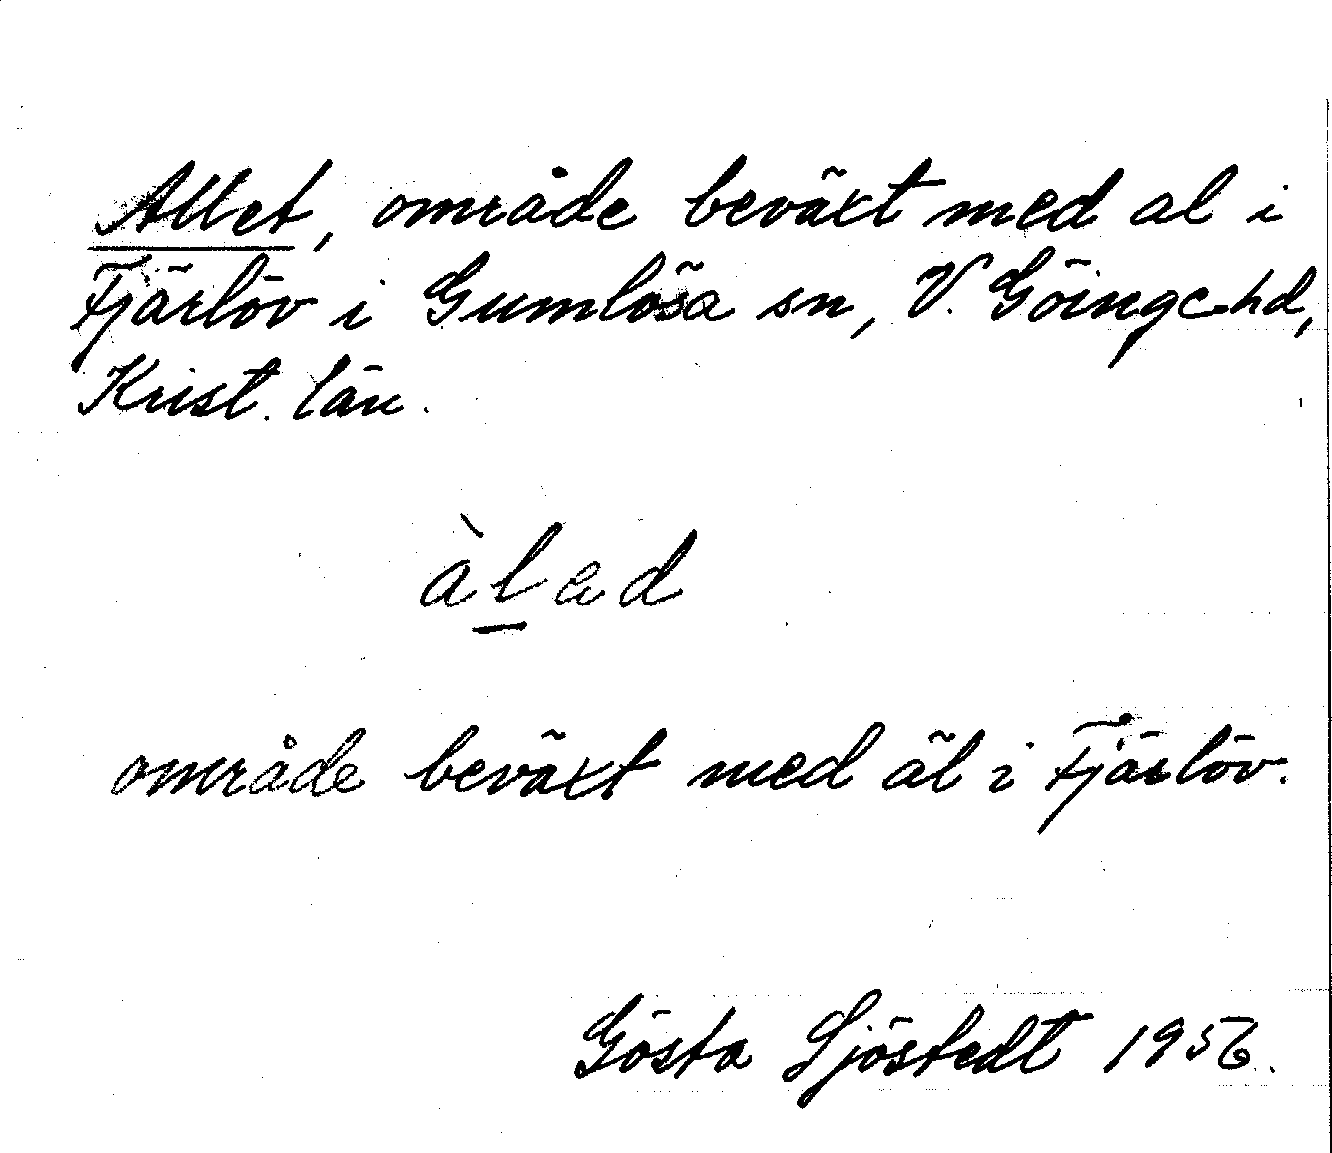 Allet, område beväxt med al i
Fjärlöv i Gumlösa sn, V. Göinge hd,
Krist. län.
àlad
område beväxt med äl i Fjärlöv.
Gösta Sjöstedt 1956.